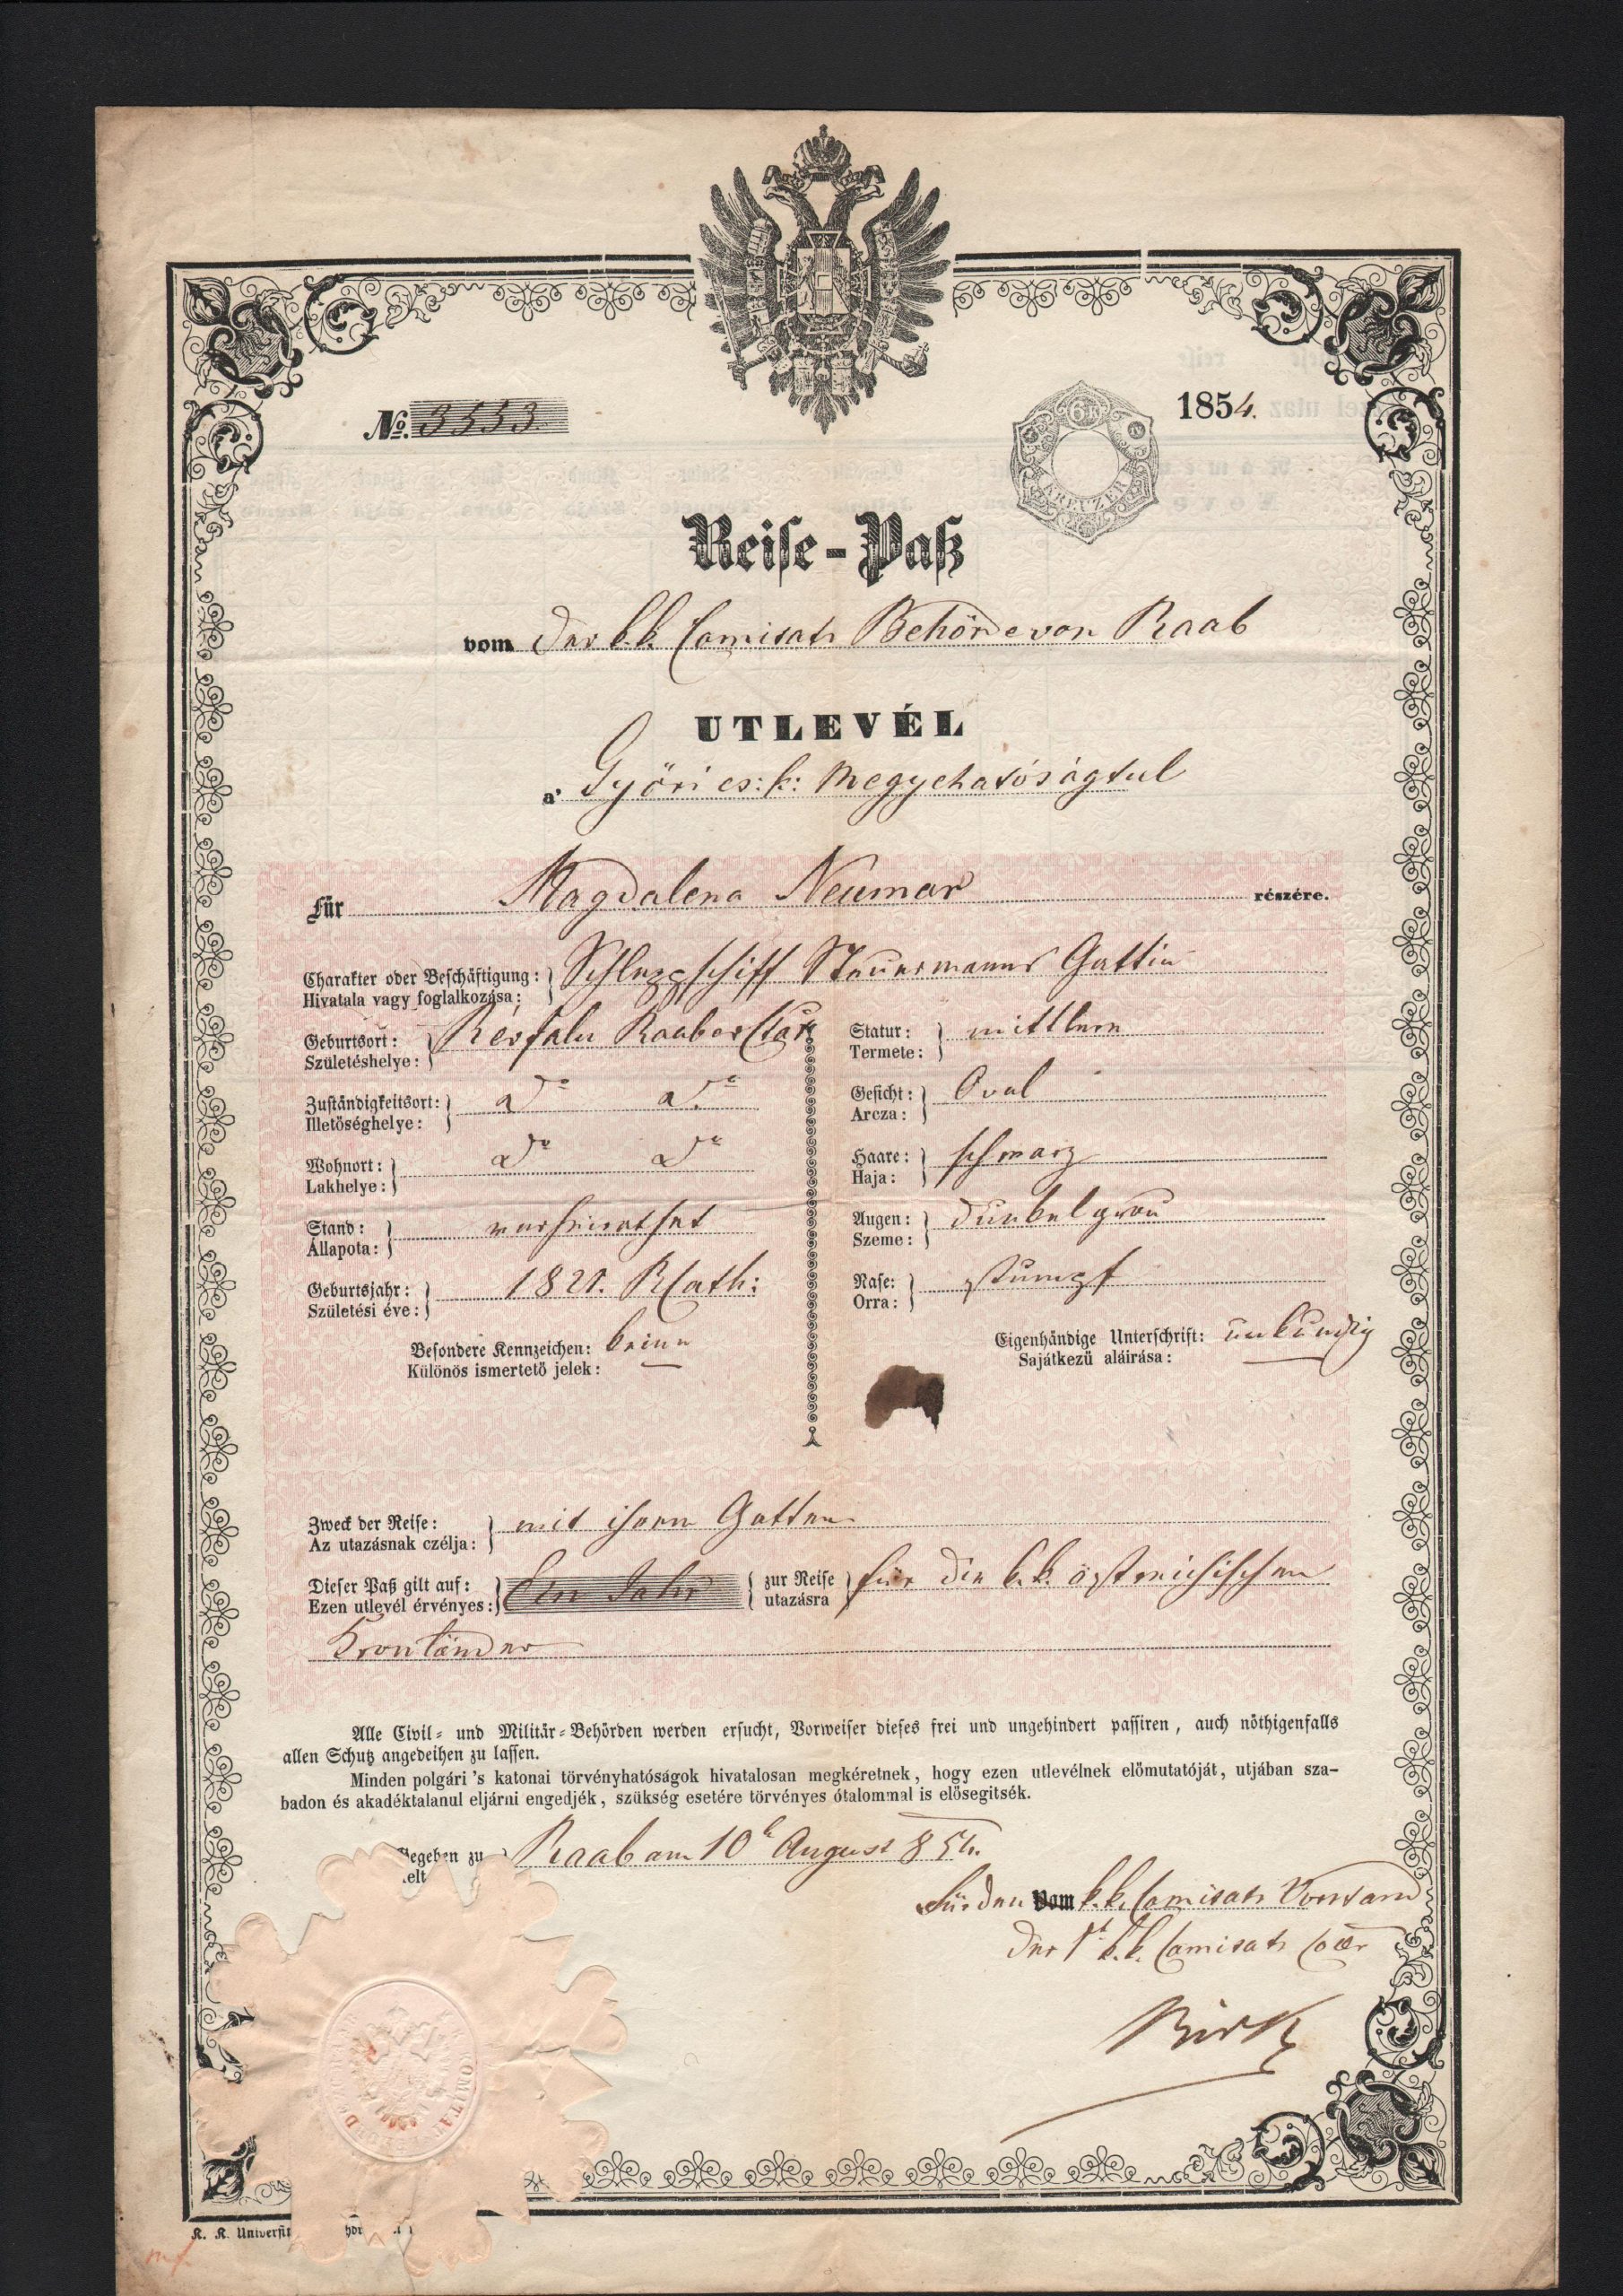 №. 3553
6 Kr
KREUZER
1854.
Reise-Paß
vom Der k.k. Comitats Behörde von Raab
UTLEVÉL
a' Győri cs: k: Megyehatóságtul
Für Magdalena Neumar részére.
Charakter oder Beschäftigung: Schleppschiff Steuermanns Gattin
Hivatala vagy foglalkozása:
Geburtsort: Révfalu Raaber
Születéshelye:
Zuständigkeitsort: do do
Illetöséghelye:
Wohnort: do do
Lakhelye:
Stand: verheirathet
Állapota:
Geburtsjahr: 1821. RCath:
Születési éve:
Besondere Kennzeichen: keine
Különös ismertetö jelek:
Statur: mittlere
Termete:
Gesicht: Oval
Arcza:
Haare: schwarz
Haja:
Augen: dunkelgrau
Szeme:
Nase: stumpf
Orra:
Eigenhändige Unterschrift: unkundig
Sajátkezü aláirása:
Zweck der Reise: mit ihren Gatten
Az utazásnak czélja:
Dieser Paß gilt auf: Ein Jahr zur Reise für die k.k. östreichischen
Ezen utlevél érvényes: utazásra
Kronländer
Alle Civil- und Militär-Behörden werden ersucht, Vorweiser dieses frei und ungehindert passiren, auch nöthigenfalls
allen Schutz angedeihen zu lassen.
Minden polgári 's katonai törvényhatóságok hivatalosan megkéretnek, hogy ezen utlevélnek elömutatóját, utjában sza-
badon és akadéktalanul eljárni engedjék, szükség esetére törvényes ótalommal is elösegitsék.
Gegeben zu Raab am 10t August 854.
Für den vom k.k. Comitats Vorstand
Der 1t k.k. Comitats
K. K. Universit